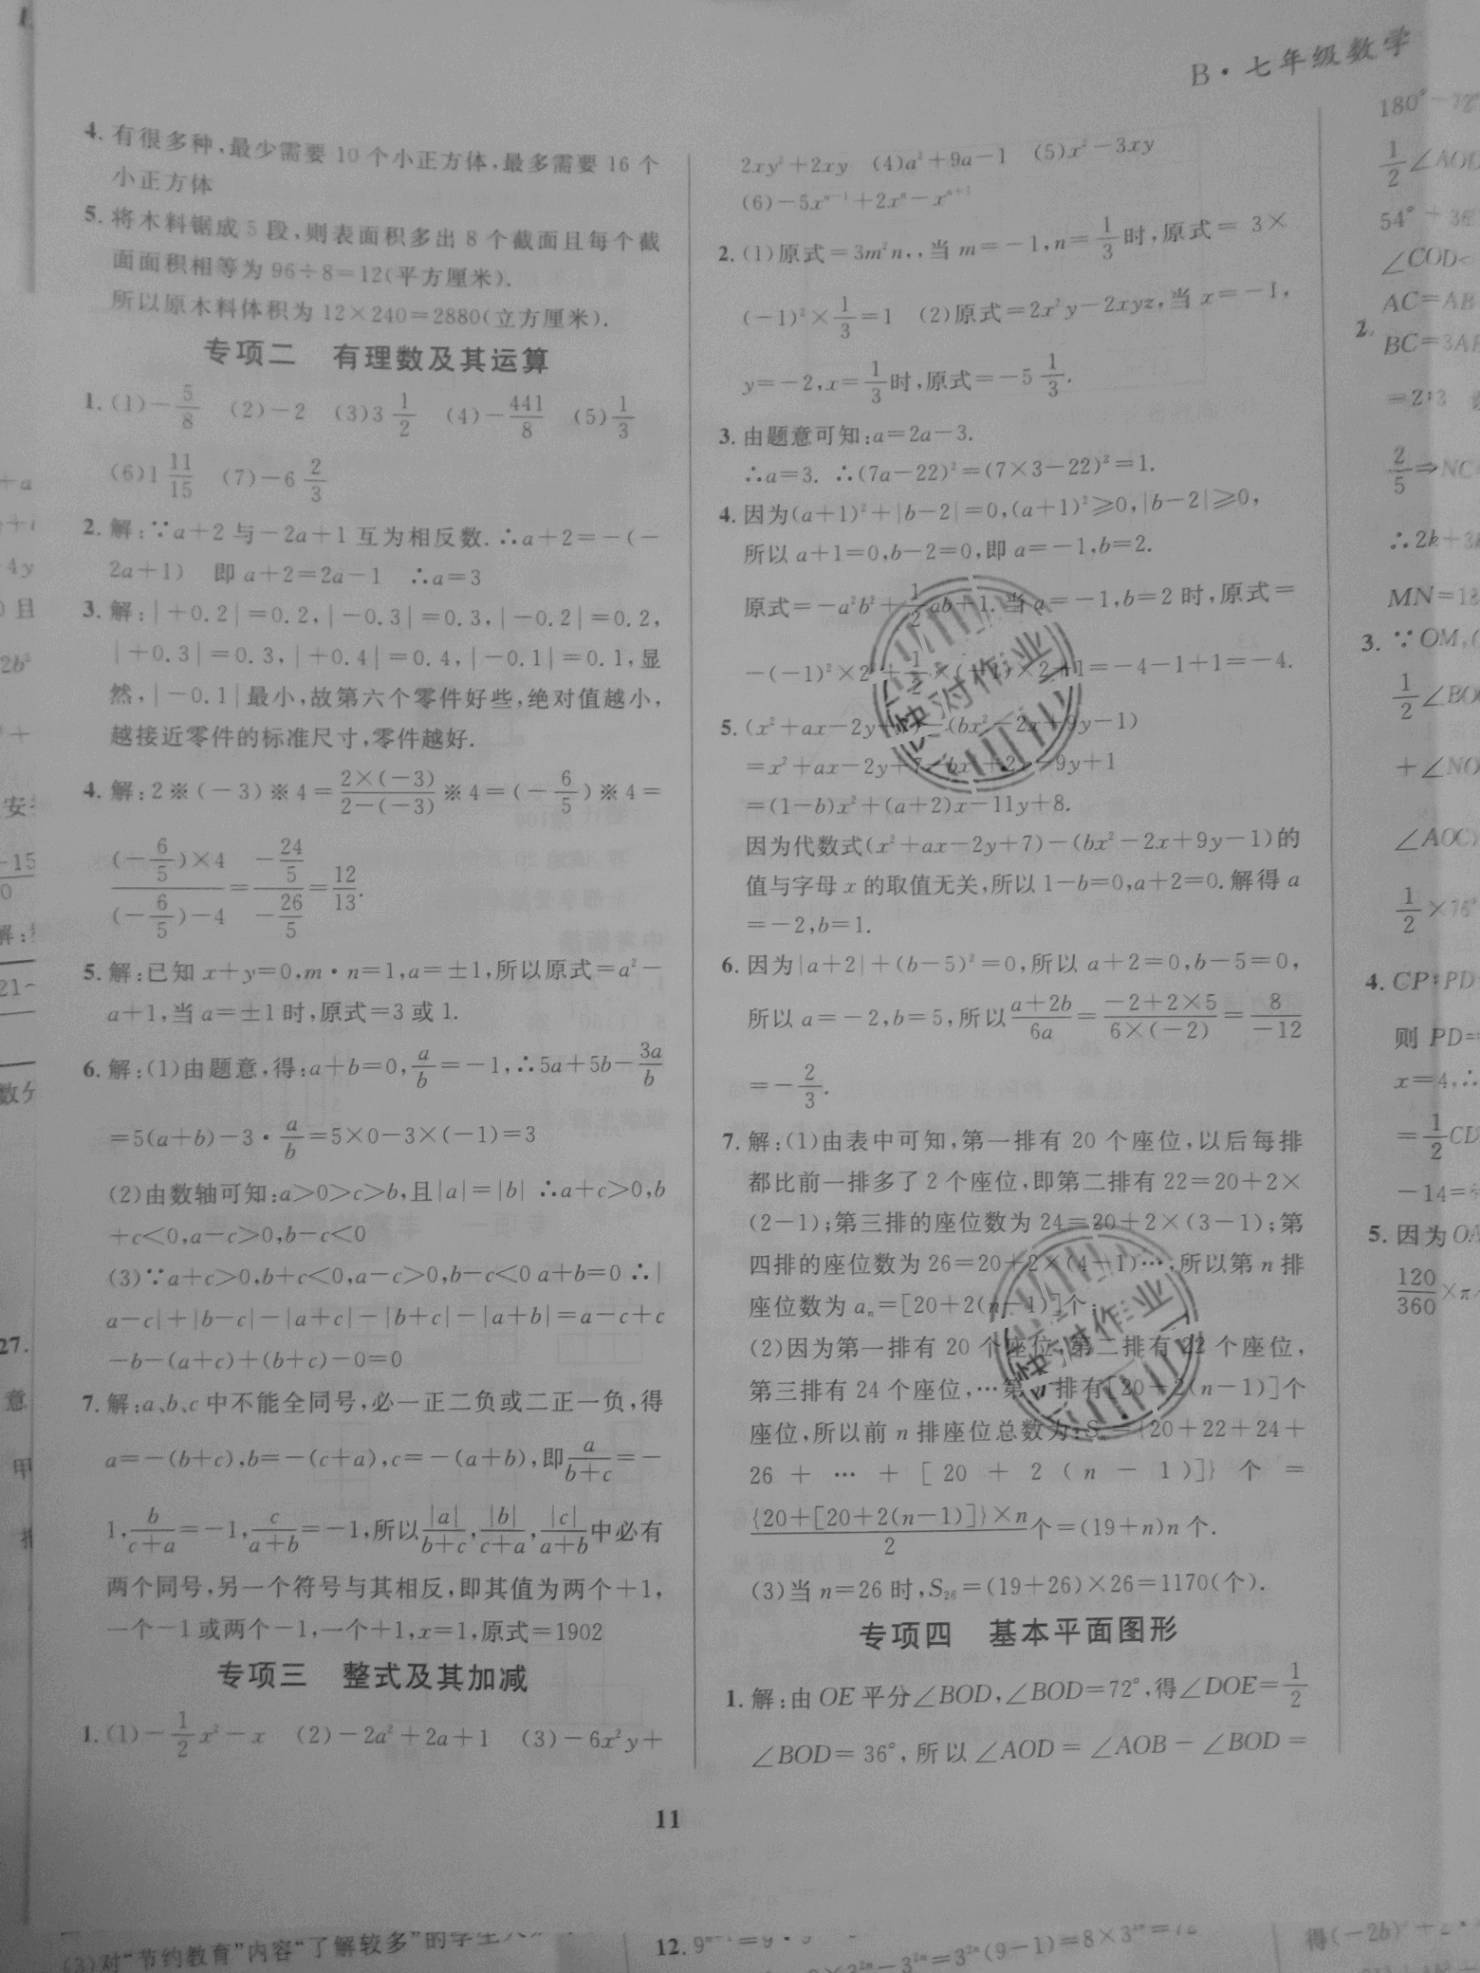 B·七年级数学
4. 有很多种,最少需要 10 个小正方体,最多需要 16 个
小正方体
5. 将木料锯成 5 段,则表面积多出 8 个截面且每个截
面面积相等为 96÷8=12(平方厘米).
所以原木料体积为 12×240=2880(立方厘米).
专项二 有理数及其运算
1. (1)-5/8 (2)-2 (3)3 1/2 (4)-441/8 (5)1/3
(6)1 11/15 (7)-6 2/3
2. 解:∵a+2 与-2a+1 互为相反数. ∴a+2=-(-
2a+1) 即 a+2=2a-1 ∴a=3
3. 解:|+0.2|=0.2,|-0.3|=0.3,|-0.2|=0.2,
|+0.3|=0.3,|+0.4|=0.4,|-0.1|=0.1,显
然,|-0.1|最小,故第六个零件好些,绝对值越小,
越接近零件的标准尺寸,零件越好.
4. 解:2※(-3)※4=2×(-3)/2-(-3)※4=(-6/5)※4=
(-6/5)×4/(-6/5)-4=-24/5/-26/5=12/13.
5. 解:已知 x+y=0,m·n=1,a=±1,所以原式=a²-
a+1,当 a=±1 时,原式=3 或 1.
6. 解:(1)由题意,得:a+b=0,a/b=-1,∴5a+5b-3a/b
=5(a+b)-3·a/b=5×0-3×(-1)=3
(2)由数轴可知:a>0>c>b,且|a|=|b| ∴a+c>0,b
+c<0,a-c>0,b-c<0
(3)∵a+c>0,b+c<0,a-c>0,b-c<0 a+b=0 ∴|
a-c|+|b-c|-|a+c|-|b+c|-|a+b|=a-c+c
-b-(a+c)+(b+c)-0=0
7. 解:a、b、c 中不能全同号,必一正二负或二正一负,得
a=-(b+c),b=-(c+a),c=-(a+b),即a/b+c=-
1,b/c+a=-1,c/a+b=-1,所以|a|/b+c,|b|/c+a,|c|/a+b中必有
两个同号,另一个符号与其相反,即其值为两个+1,
一个-1 或两个-1,一个+1,x=1,原式=1902
专项三 整式及其加减
1. (1)-1/2x²-x (2)-2a²+2a+1 (3)-6x²y+
2xy²+2xy (4)a²+9a-1 (5)x²-3xy
(6)-5xⁿ⁻¹+2xⁿ-xⁿ⁺¹
2. (1)原式=3m²n,,当 m=-1,n=1/3时,原式= 3×
(-1)²×1/3=1 (2)原式=2x²y-2xyz,当 x=-1,
y=-2,x=1/3时,原式=-5 1/3.
3. 由题意可知:a=2a-3.
∴a=3. ∴(7a-22)²=(7×3-22)²=1.
4. 因为(a+1)²+|b-2|=0,(a+1)²≥0,|b-2|≥0,
所以 a+1=0,b-2=0,即 a=-1,b=2.
原式=-a²b²+1/2ab+1. 当 a=-1,b=2 时,原式=
-(-1)²×2²+1/2×(-1)×2+1=-4-1+1=-4.
5. (x²+ax-2y+7)-(bx²-2x+9y-1)
=x²+ax-2y+7-bx²+2x-9y+1
=(1-b)x²+(a+2)x-11y+8.
因为代数式(x²+ax-2y+7)-(bx²-2x+9y-1)的
值与字母 x 的取值无关,所以 1-b=0,a+2=0. 解得 a
=-2,b=1.
6. 因为|a+2|+(b-5)²=0,所以 a+2=0,b-5=0,
所以 a=-2,b=5,所以a+2b/6a=-2+2×5/6×(-2)=8/-12
=-2/3.
7. 解:(1)由表中可知,第一排有 20 个座位,以后每排
都比前一排多了 2 个座位,即第二排有 22=20+2×
(2-1);第三排的座位数为 24=20+2×(3-1);第
四排的座位数为 26=20+2×(4-1)…,所以第 n 排
座位数为 aₙ=[20+2(n-1)]个;
(2)因为第一排有 20 个座位,第二排有 22 个座位,
第三排有 24 个座位,…第 排有[20+2(n-1)]个
座位,所以前 n 排座位总数为:S ={20+22+24+
26+…+[20+2(n-1)]}个=
{20+[20+2(n-1)]}×n/2个=(19+n)n 个.
(3)当 n=26 时,S₂₆=(19+26)×26=1170(个).
专项四 基本平面图形
1. 解:由 OE 平分∠BOD,∠BOD=72°,得∠DOE=1/2
∠BOD=36°,所以∠AOD=∠AOB-∠BOD=
快对作业
快对作业
11
180°-72°
1/2∠AOD
54°+36
∠COD=
AC=AB
2. BC=3AB
=2:3
2/5⇒NC
∴2k+3
MN=18
3. ∵OM,
1/2∠BO
+∠NO
∠AOC)
1/2×76°
4. CP:PD
则 PD=
x=4,∴
=1/2CD
-14=
5. 因为 OA
120/360×π
27.
意
甲
(3)对“节约教育”内容“了解较多”的学生
12.
-3²ⁿ=3²ⁿ(9-1)=8×3²ⁿ=72
得(-2b)